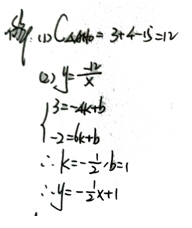 解: (1) C△AHO = 3+4+5=12
(2) y=\frac{-12}{x}
{3=-4k+b
-2=6k+b
∴ k=-\frac{1}{2}, b=1
∴ y=-\frac{1}{2}x+1